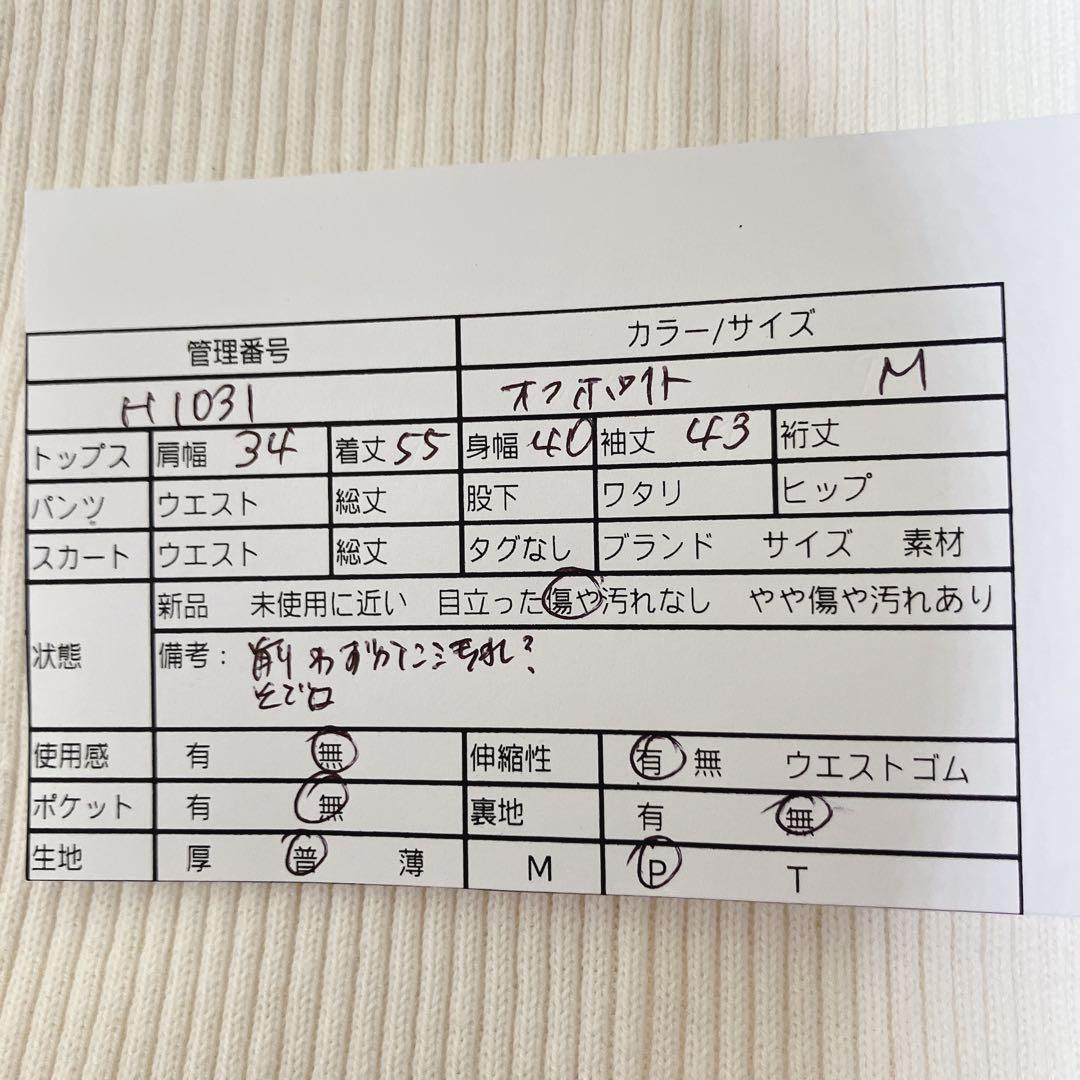 管理番号 カラー/サイズ
H1031 オフホワイト M
トップス 肩幅 34 着丈 55 身幅 40 袖丈 43 裄丈
パンツ ウエスト 総丈 股下 ワタリ ヒップ
スカート ウエスト 総丈 タグなし ブランド サイズ 素材
状態 新品 未使用に近い 目立った傷や汚れなし やや傷や汚れあり
備考： 前 わずかにシミ汚れ？
そで口
使用感 有 無 伸縮性 有 無 ウエストゴム
ポケット 有 無 裏地 有 無
生地 厚 普 薄 M P T